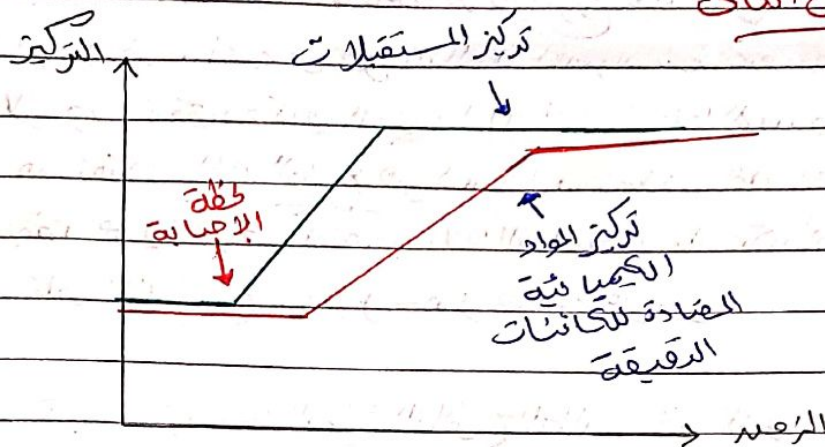 التركيز
تركيز المستقبلات
لحظة
الاصابة
تركيز المواد
الكيميائية
المضادة للكائنات
الدقيقة
الزمن